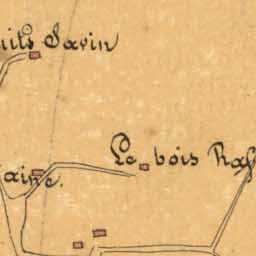 uits Savin
Le bois Raf
aine.